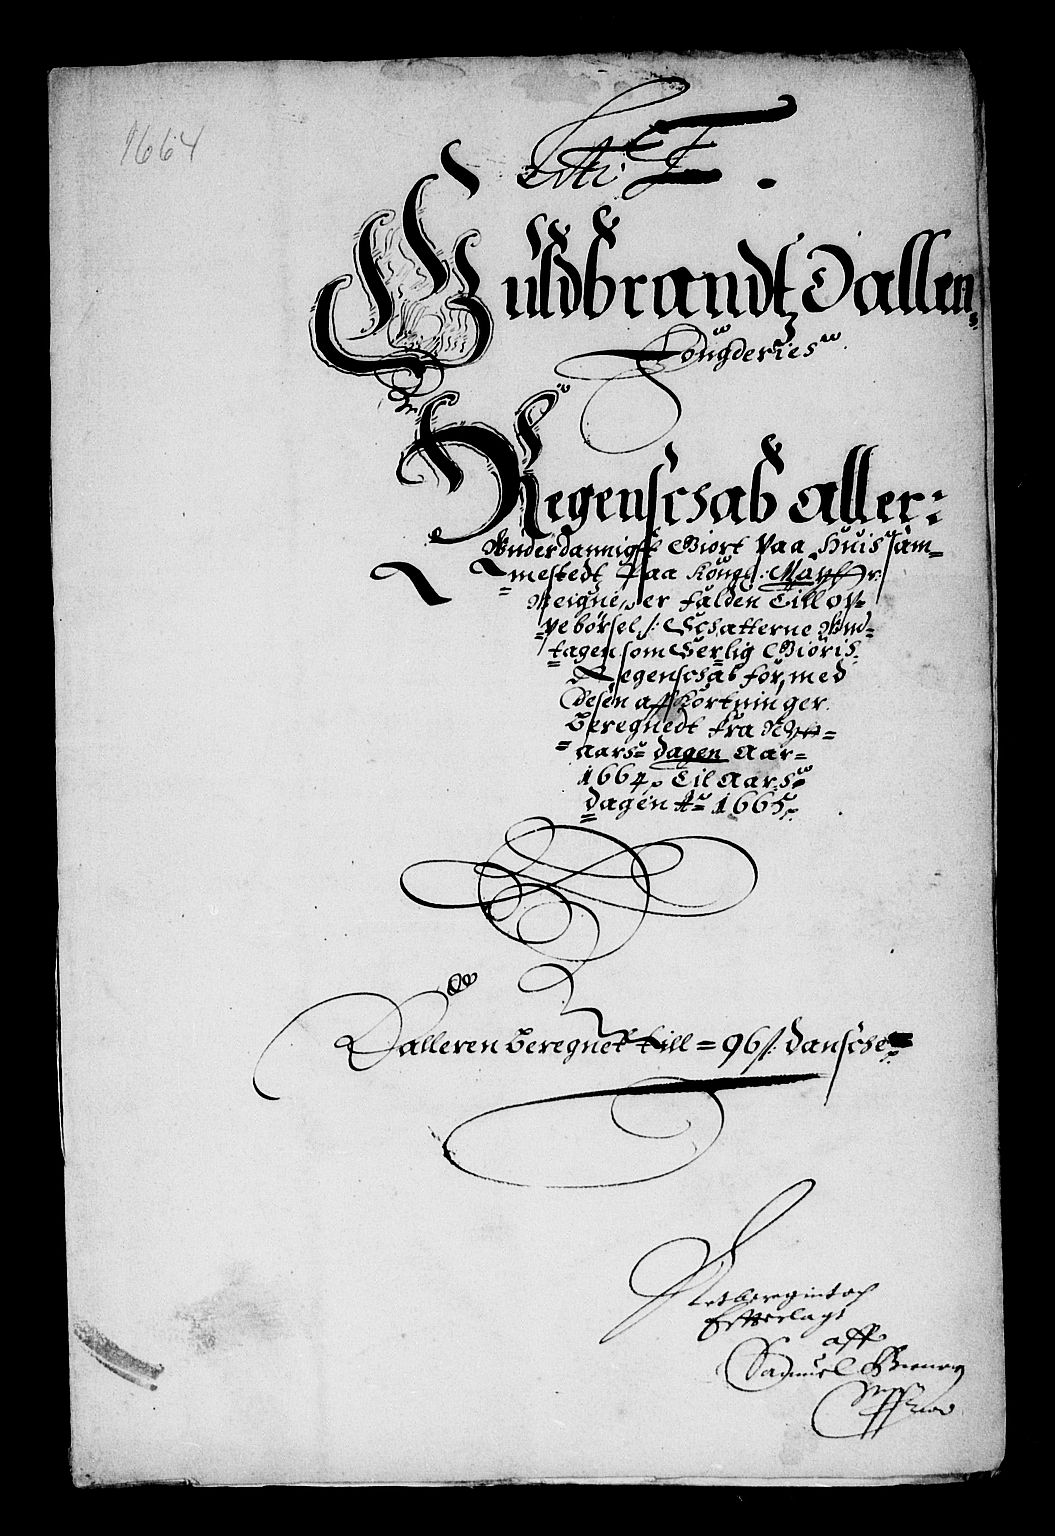 1664
Guldbrandtz Dallens
Fougderies
Regenschab aller:
Underdannigst Giort paa Huis sam=
mestedt Paa Kongl: Maytt:
Weigne er falden Till op=
pebörsel, Schatterne Und=
tagen som Serlig Giöris
Regenschab for, med
Desen aff Kortninger
beregnedt fra Nytt=
aars dagen Aar=
1664 Til Aars
dagen Ao 1665
Dalleren beregnet till = 96 s: danscher
Effterlagt
aff
Samuel